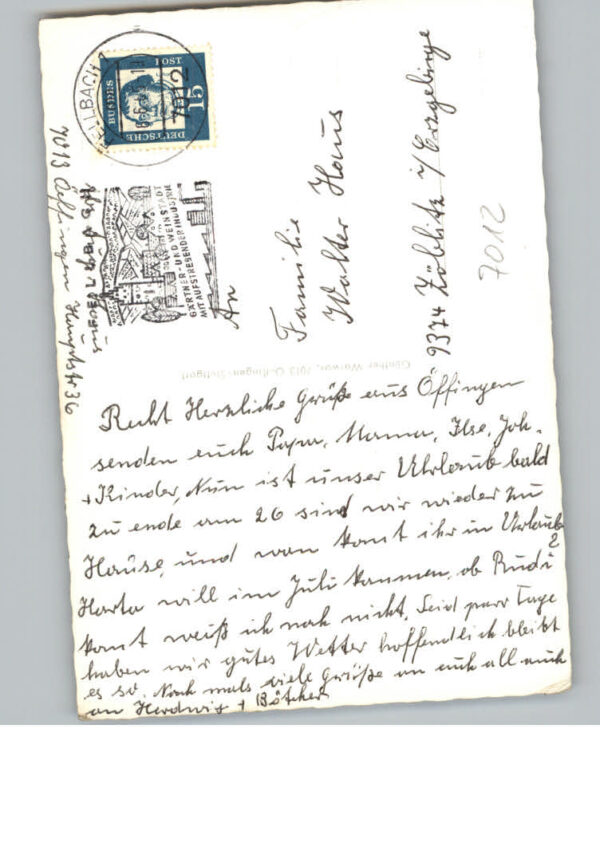 DEUTSCHE BUNDESPOST
15
FELLBACH
7012
FELLBACH
GÄRTNER- UND WEINSTADT
MIT AUFSTREBENDER INDUSTRIE
7013 Öffingen Hauptstr 36
An
Familie
Walter Haus
9374 Zöblitz i/Erzgebirge
7012
Günther Warwon, 7013 Öffingen-Stuttgart
Recht Herzliche Grüße aus Öffingen
senden euch Papa, Mama, Ilse, Joh.
+ Kinder, Nun ist unser Uhrlaub bald
zu ende am 26 sind wir wieder zu
Hause, und wan komt ihr in Uhrlaub
?
Harta will im Juli kommen, ob Rudi
komt weiß ich noh nicht, Seid paar Tage
haben wir gutes Wetter hoffendlich bleibt
es so. Noch mals viele Grüße an euch all auch
an Herdwig + Bötcher